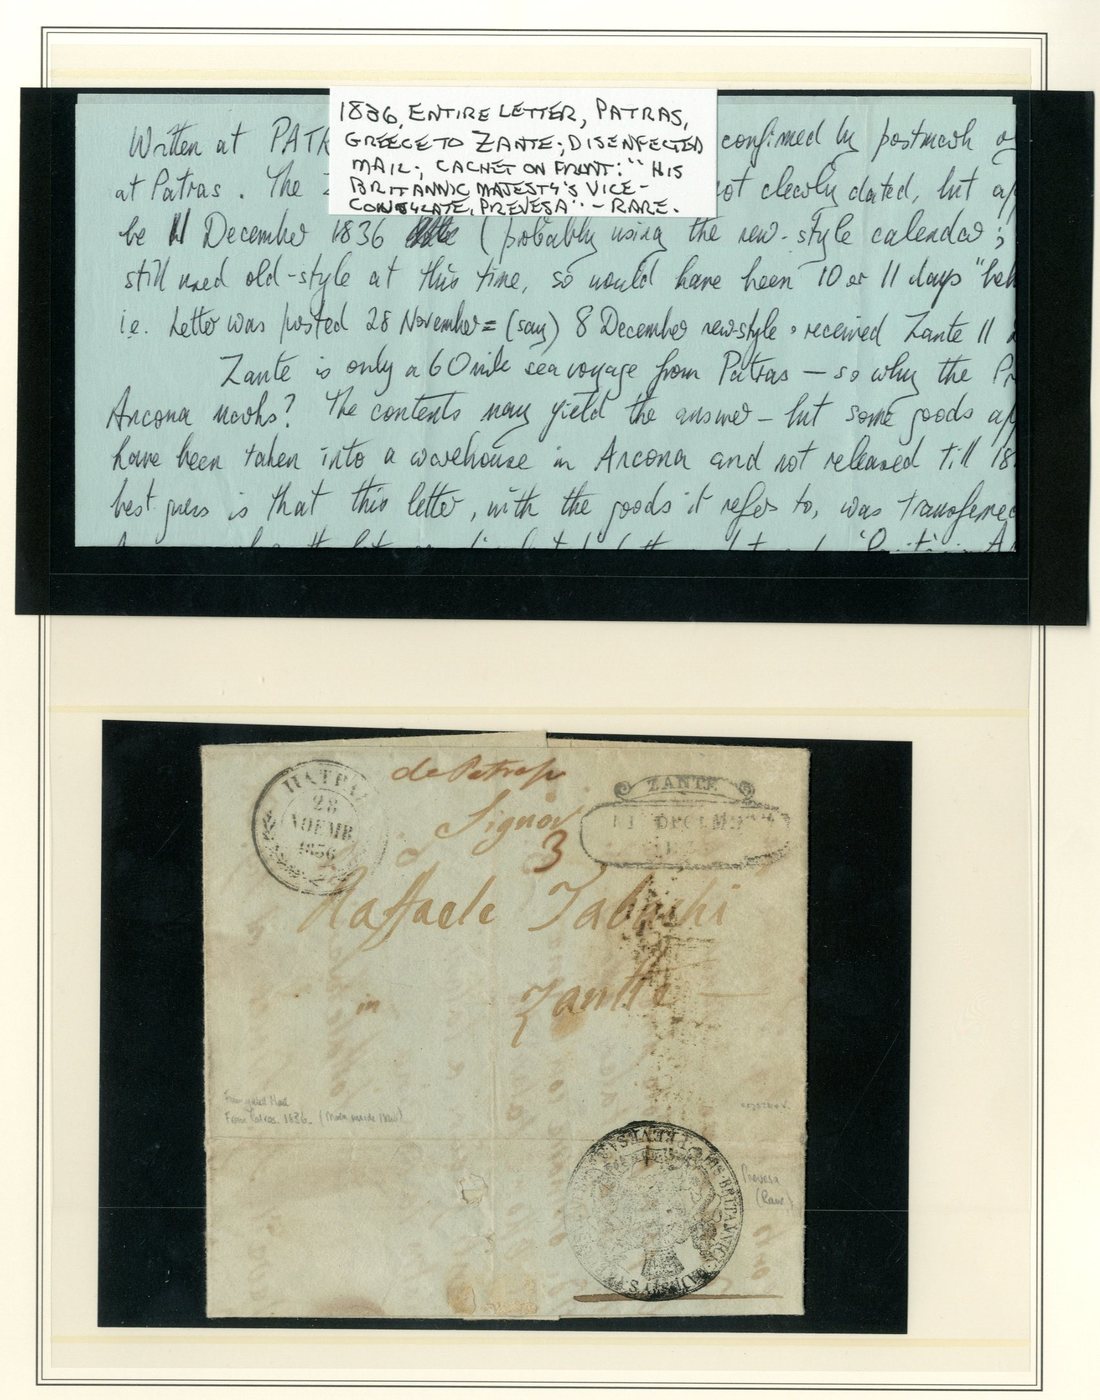 1836, ENTIRE LETTER, PATRAS,
GREECE TO ZANTE; DISENFECTED
MAIL; CACHET ON FRONT: "HIS
BRITANNIC MAJESTY'S VICE-
CONSULATE, PREVESA" - RARE.
Written at PATR confirmed by postmark
at Patras. The not clearly dated, but
be 11 December 1836 (probably using the new-style calendar;
still used old-style at this time, so would have been 10 or 11 days "beh
i.e. Letter was posted 28 November = (say) 8 December newstyle & received Zante 11
Zante is only a 60 mile sea voyage from Patras — so why the Pr
Ancona marks? The contents may yield the answer — but some goods ap
have been taken into a warehouse in Ancona and not released till 18
best guess is that this letter, with the goods it refers to, was transferred
ΠΑΤΡΑ
28
ΝΟΕΜΒ
1836
de Patrass
ZANTE
Signor
3
11
Raffaele Tabachi
in Zantte
From Patras. 1836. (Mark inside Mail)
Prevesa
(Rare)
HIS BRITANNICK MAJESTY'S PREVESA